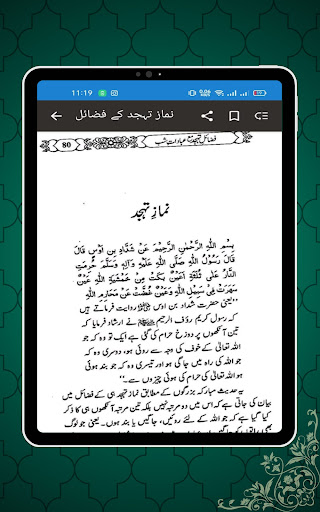 11:19
نماز تہجد کے فضائل
فضائل تہجد مع عبادات شب
80
نمازِ تہجد
بِسْمِ اللّٰهِ الرَّحْمٰنِ الرَّحِيْمِ عَنْ شَدَّادِ بْنِ اَوْسٍ قَالَ
قَالَ رَسُوْلُ اللّٰهِ صَلَّى اللّٰهُ عَلَيْهِ وَآلِهٖ وَسَلَّمَ حُرِّمَتِ
النَّارُ عَلٰى ثَلٰثَةِ اَعْيُنٍ عَيْنٌ بَكَتْ مِنْ خَشْيَةِ اللّٰهِ وَعَيْنٌ
سَهِرَتْ فِيْ سَبِيْلِ اللّٰهِ وَعَيْنٌ غُضَّتْ عَنْ مَحَارِمِ اللّٰهِ
یعنی حضرت شداد بن اوس روایت فرماتے ہیں
کہ رسول کریم رؤف الرحیم نے ارشاد فرمایا کہ
تین آنکھوں پر دوزخ حرام کی گئی ہے ایک تو وہ کہ جو
اللہ تعالیٰ کے خوف کی وجہ سے روئی ہو، دوسری وہ کہ
جو اللہ کی راہ میں جاگی ہو اور تیسری وہ کہ جو
اللہ تعالیٰ کی حرام کی ہوئی چیزوں سے
یہ حدیث مبارکہ بزرگوں کے مطابق نماز تہجد ہی کے فضائل میں
بیان کی جاتی ہے کہ اس میں دو مرتبہ نہیں بلکہ تین مرتبہ آنکھوں کا ذکر
کیا گیا ہے کہ جو اللہ کے لئے روئیں، جاگیں یا بند ہوں۔ یعنی جو لوگ